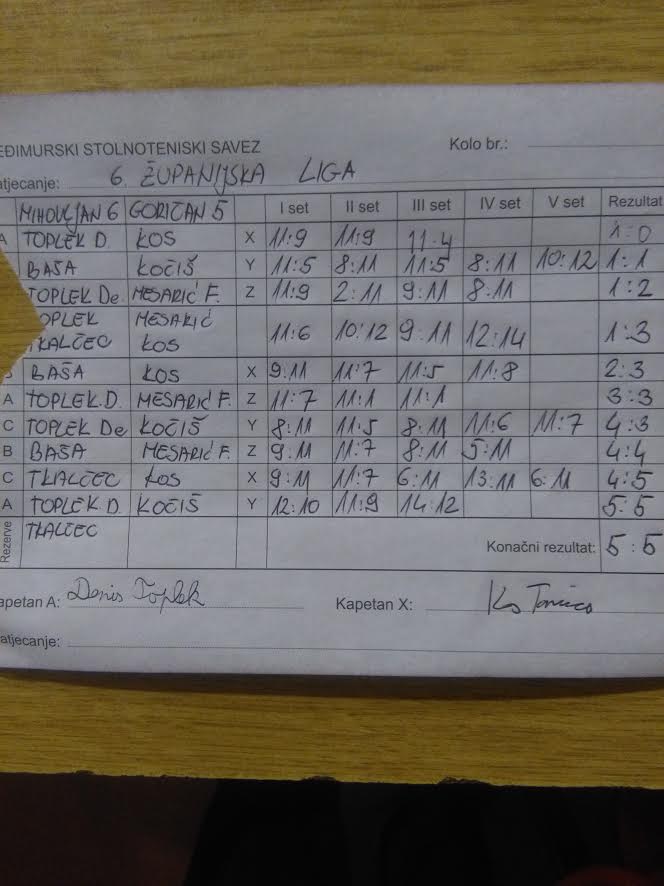 EĐIMURSKI STOLNOTENISKI SAVEZ Kolo br.:
atjecanje: 6. ŽUPANIJSKA LIGA
MIHOVLJAN 6 GORIČAN 5 I set II set III set IV set V set Rezultat
A TOPLEK D. KOS X 11:9 11:9 11:4 1:0
BAŠA KOČIŠ Y 11:5 8:11 11:5 8:11 10:12 1:1
TOPLEK De. MESARIĆ F. Z 11:9 2:11 9:11 8:11 1:2
OPLEK MESARIĆ
TKALČEC KOS 11:6 10:12 9:11 12:14 1:3
B BAŠA KOS X 9:11 11:7 11:5 11:8 2:3
A TOPLEK.D. MESARIĆ F. Z 11:7 11:1 11:1 3:3
C TOPLEK De KOČIŠ Y 8:11 11:5 8:11 11:6 11:7 4:3
B BAŠA MESARIĆ F. Z 9:11 11:7 8:11 5:11 4:4
C TKALČEC KOS X 9:11 11:7 6:11 13:11 6:11 4:5
A TOPLEK.D. KOČIŠ Y 12:10 11:9 14:12 5:5
Rezerve TKALČEC
Konačni rezultat: 5:5
apetan A: Denis Toplek Kapetan X:
atjecanje: